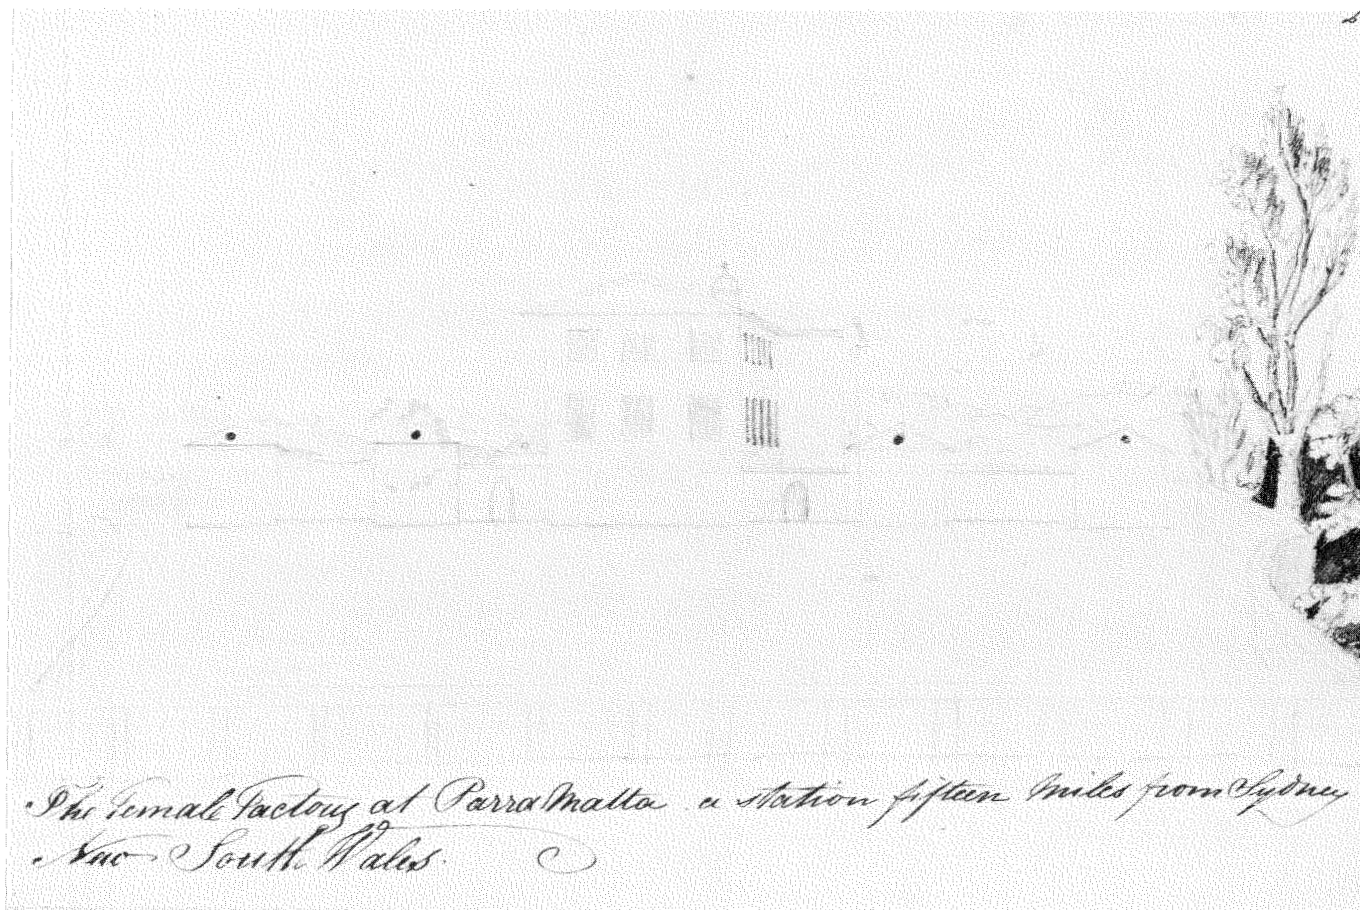 The Female Factory at Parra Matta a station fifteen miles from Sydney
New South Wales.